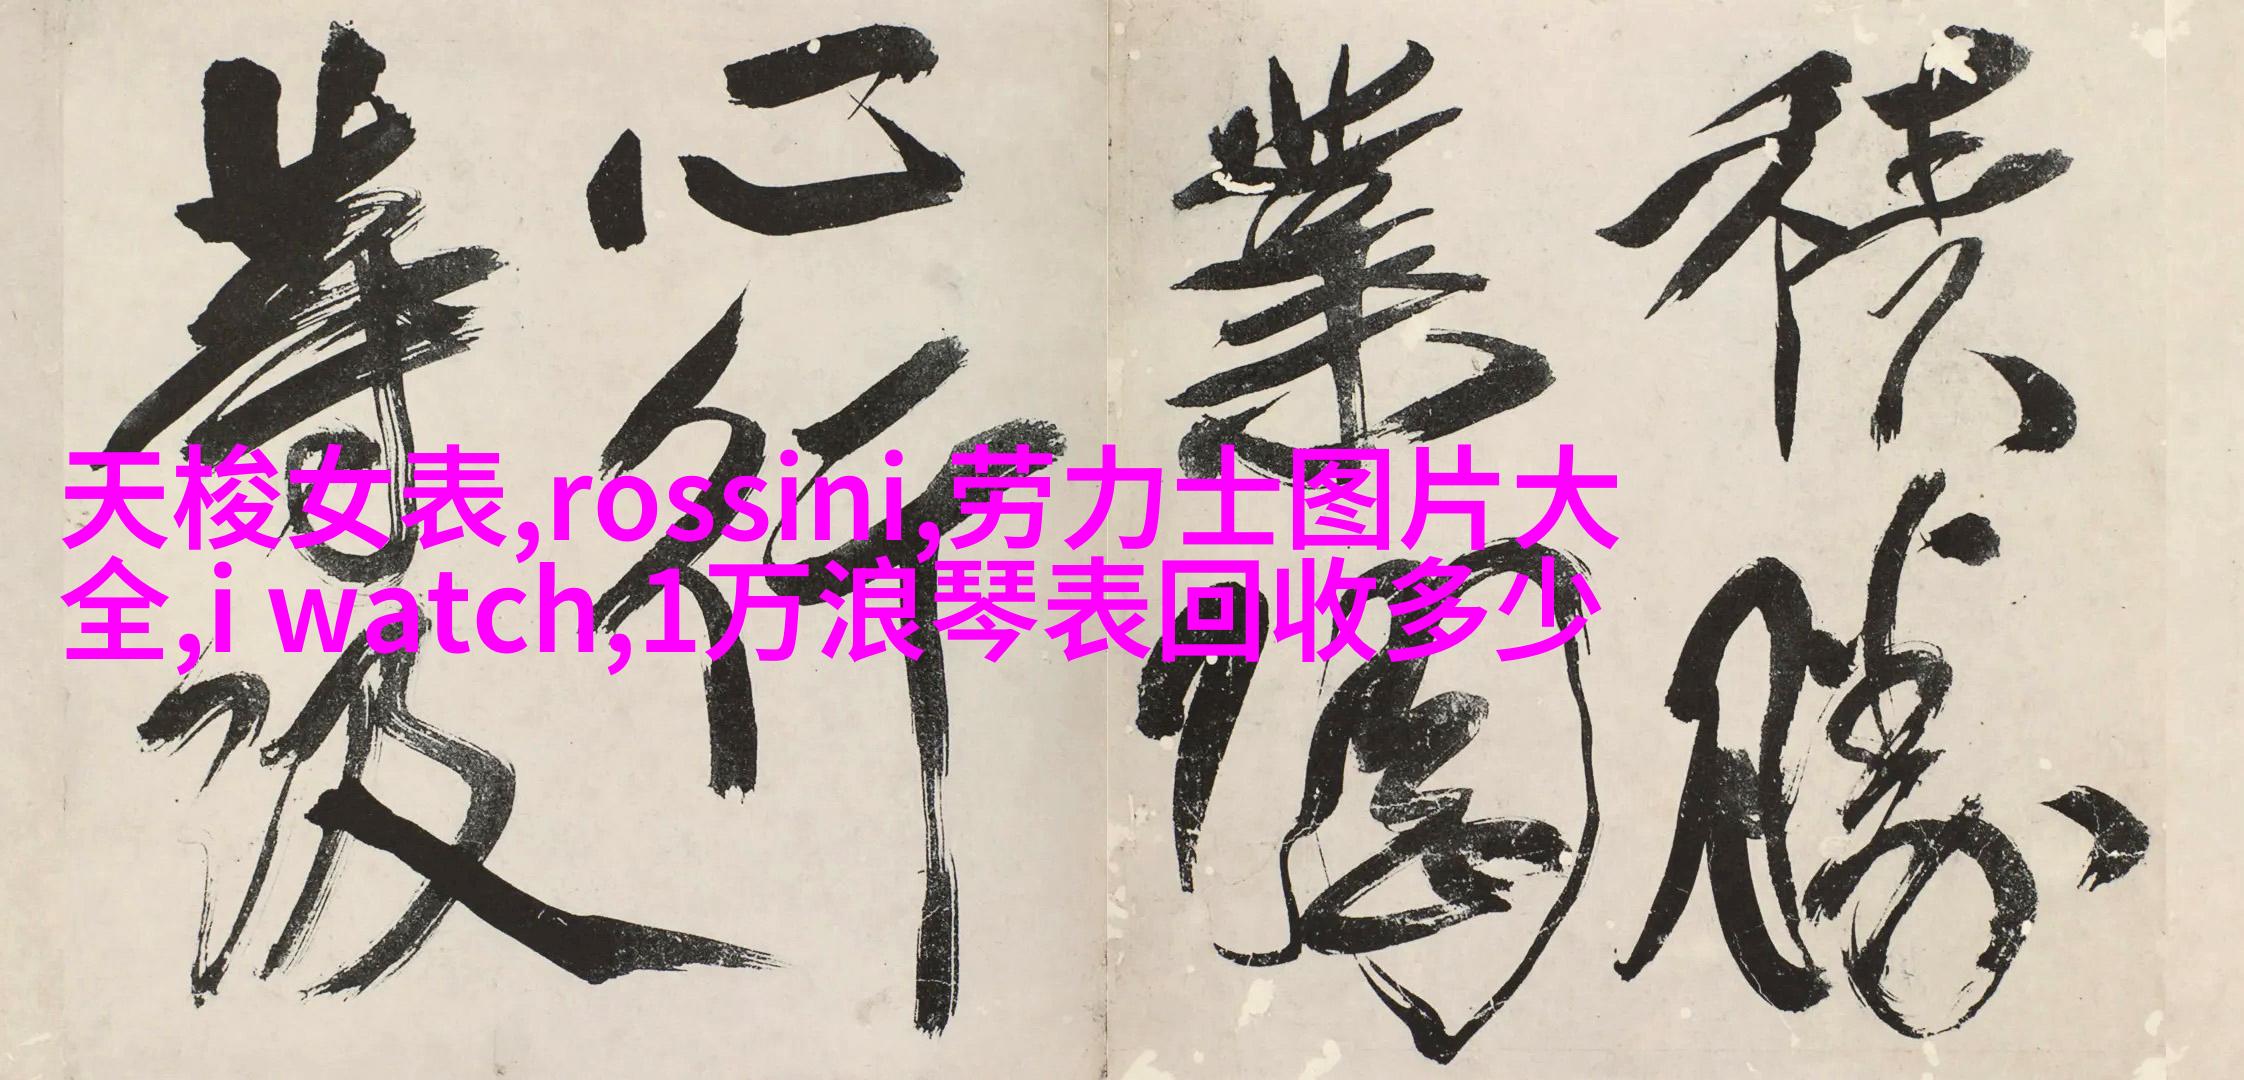 積勝
業因
心行
等役
天梭女表,rossini,劳力士图片大
全,i watch,1万浪琴表回收多少